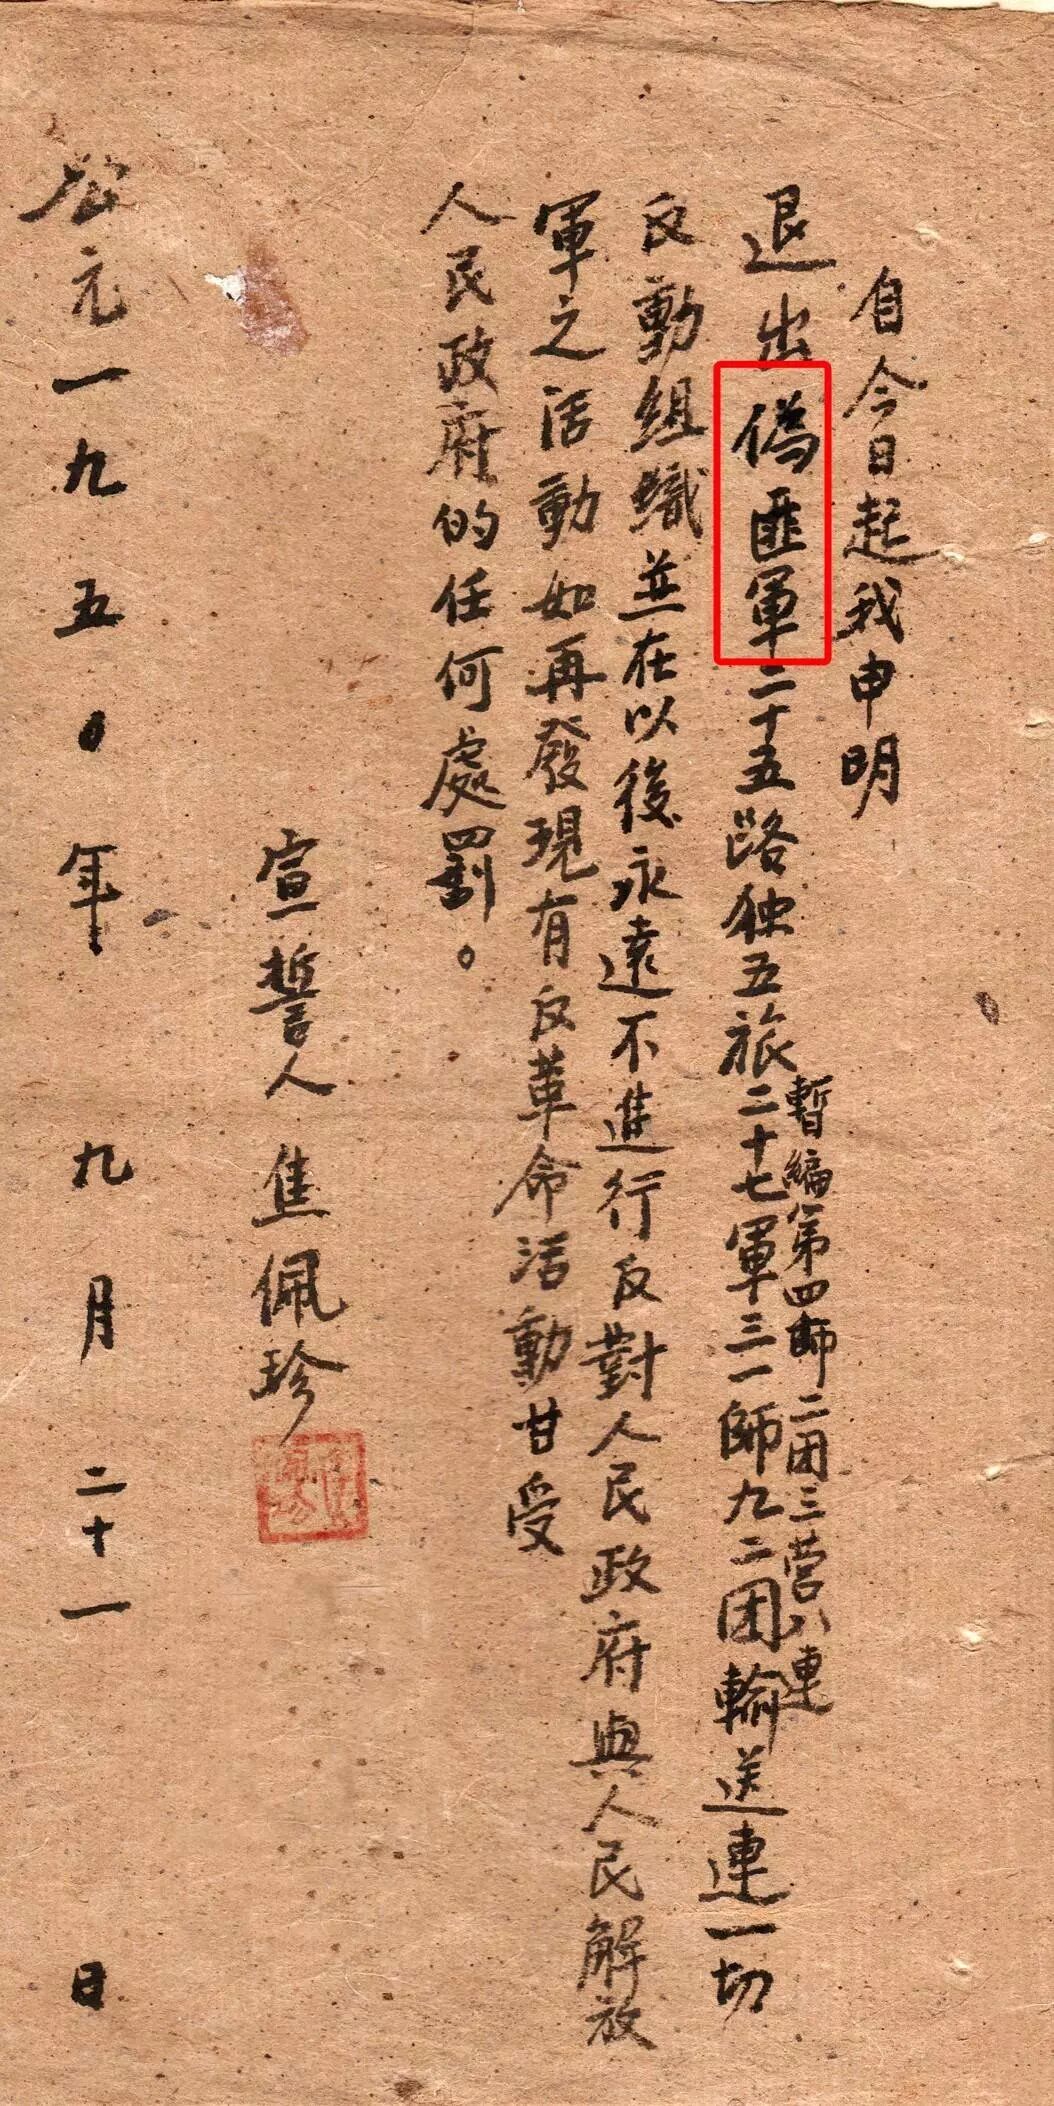 自今日起我申明
暫編第四師二团三营八連
退出偽匪軍二十五路独五旅二十七軍三一師九二团輸送連一切
反動組織並在以後永遠不進行反對人民政府與人民解放
軍之活動如再發現有反革命活動甘受
人民政府的任何處罰。
宣誓人 焦佩珍
公元一九五〇年九月二十一日